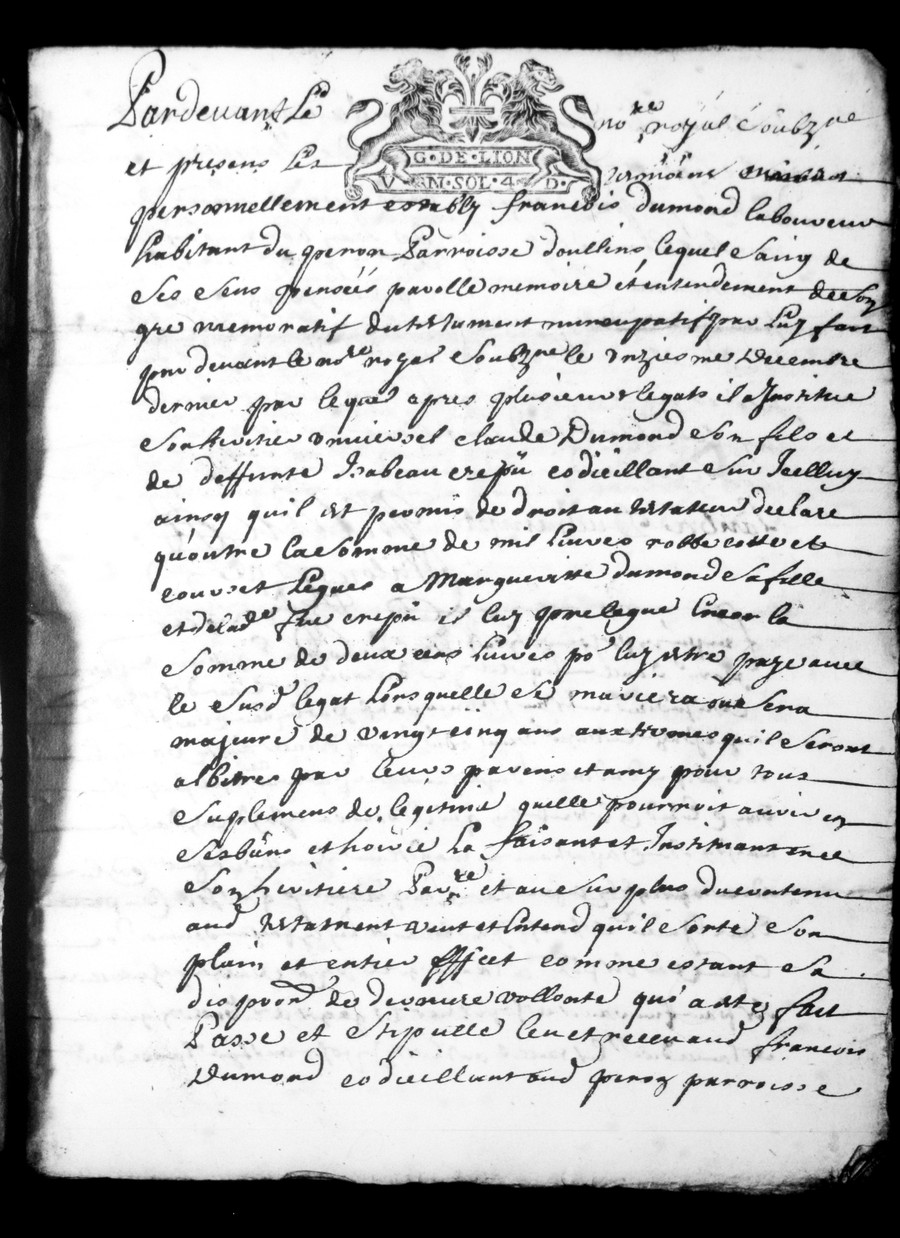 Pardevant Le no.re royal Soubz.ne
G·DE·LION
et presens Les tesmoins
V N M·SOL·4·D·
personnellement estably francois dumond laboureur
habitant du peron Parroisse doullins lequel sain de
ses sens pensées parolle memoire et entendement de son
gre memoratif du testament nuncupatif par luy fait
par devant le no.re royal Soubz.ne le unziesme decembre
dernier par lequel apres plusieurs legats il a Institue
son heritier universel claude Dumond son fils et
de deffunte Isabeau crepu codicillant sur Icelluy
ainsy quil est permis de droit au testateur declare
quoutre la somme de mil livres robbe cotte et
couvert leguez a Margueritte dumond sa fille
et de lad.e fue crepu il luy prelegue Encor la
somme de deux cens livres po.r luy estre paye avec
le susd. legat Lors quelle se mariera ou sera
majeure de vingt cinq ans aux termes quil seront
albitres par leurs parens et amy pour tous
suplemens de legitime quelle pourroit avoir en
ses biens et hoirie La faisant et Instituant en ce
son heritiere Par.re et au surplus du contenu
aud. testament veut et Entend quil sorte son
plain et entier efffect comme estant sa
dispon.on de derniere vollonte qui a este fait
Passe et stipulle leu et releu aud. francois
Dumond codicillant aud. peron parroisse